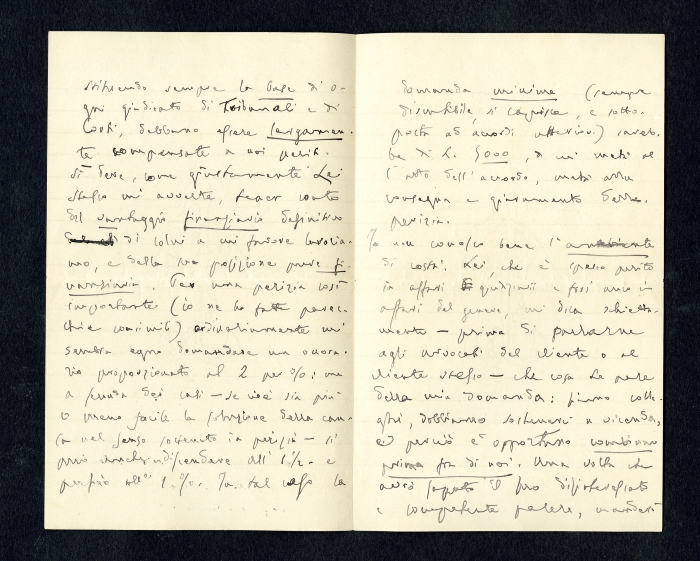 stituendo sempre la base di o-
gni giudicato di Tribunali e di
Corti, debbono essere largamen-
te compensate a noi periti.
Si deve, come giustamente Lei
stesso mi avverte, tener conto
del vantaggio finanziario definitivo
di colui a cui favore lavoria-
mo, e della sua posizione pure fi-
nanziaria. Per una perizia così
importante (io ne ho fatte parec-
chie consimili) ordinariamente mi
sembra equo domandare un onora-
rio proporzionato al 2 per %: ma
a seconda dei casi – se cioè sia più
o meno facile la soluzione della cau-
sa nel senso sostenuto in perizia – si
può anche discendere all' 1½ e
perfino all' 1 %. In tal caso la
domanda minima (sempre
discutibile, si capisce, e sotto-
posta ad accordi ulteriori) sareb-
be di L. 5000, di cui metà al-
l'atto dell'accordo, metà alla
consegna e giuramento della
perizia.
Io non conosco bene l'ambiente
di costì. Lei, che è spesso perito
in affari giudiziarii e forsi anco in
affari del genere, mi dica schietta-
mente – prima di parlarne
agli avvocati del cliente o al
cliente stesso – che cosa Le pare
della mia domanda: siamo colle-
ghi, dobbiamo sostenerci a vicenda,
e perciò è opportuno combinare
prima fra di noi. Una volta che
avrò saputo il suo disinteressato
e competente parere, manderò